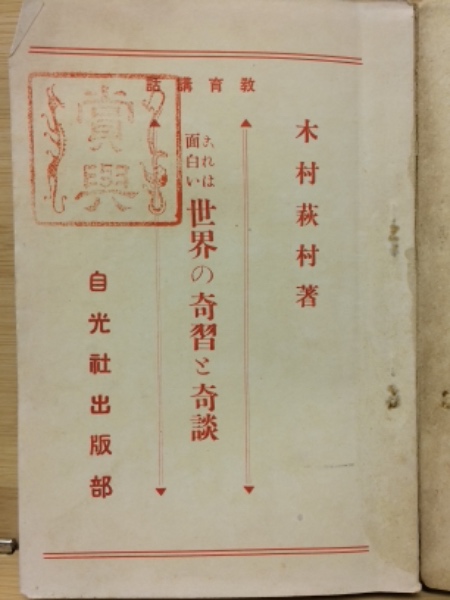 教育講話
木村萩村著
これは
面白い
世界の奇習と奇談
自光社出版部
賞與